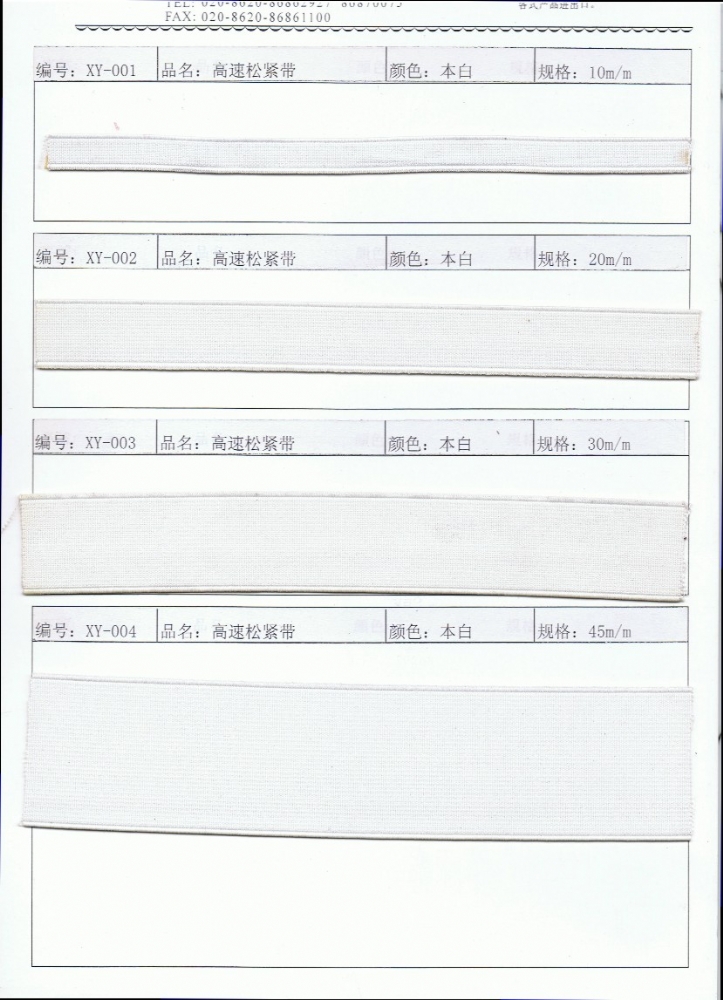 FAX: 020-8620-86861100
编号：XY-001 品名：高速松紧带 颜色：本白 规格：10m/m
编号：XY-002 品名：高速松紧带 颜色：本白 规格：20m/m
编号：XY-003 品名：高速松紧带 颜色：本白 规格：30m/m
编号：XY-004 品名：高速松紧带 颜色：本白 规格：45m/m